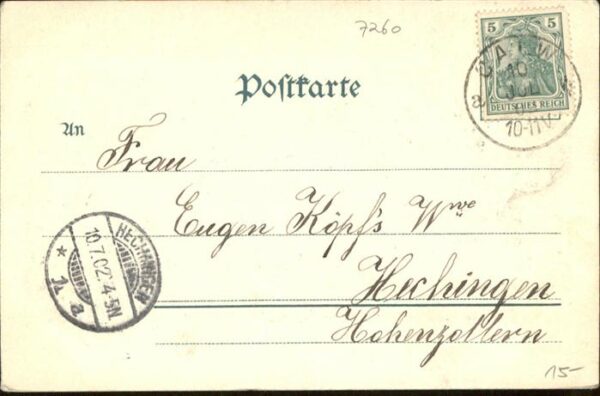 7260
5 5
DEUTSCHES REICH
CALW
10 JUL
10-11V
a
Postkarte
An
Frau
Eugen Köpf's Wwe
Hechingen
Hohenzollern
HECHINGEN
10.7.02.4-5N
* a *
15-